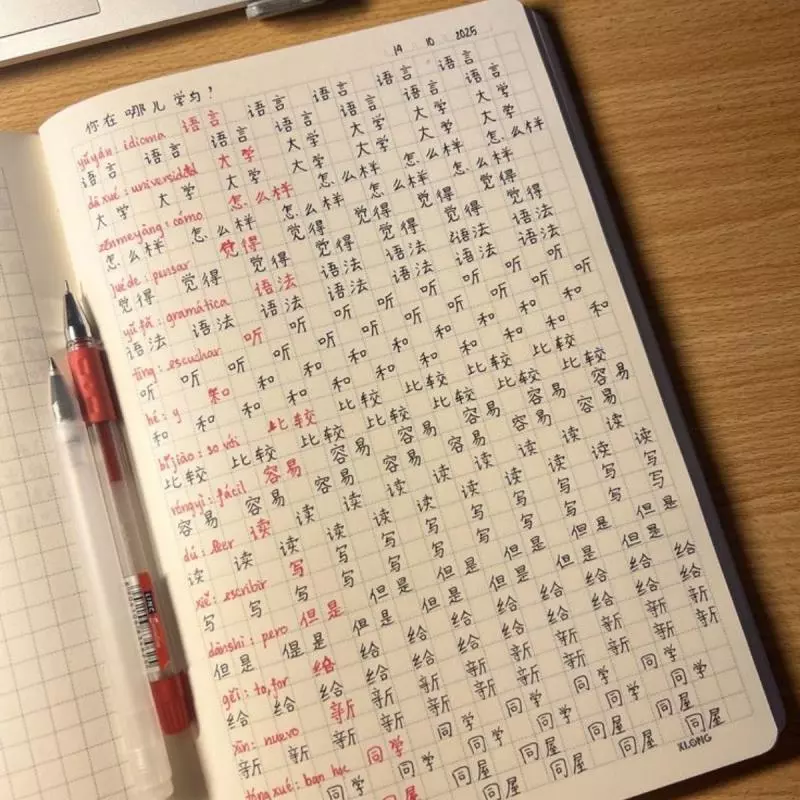 19 10 2025
你在哪儿学习?
yǔyán: idioma 语言 语言 语言 语言 语言
语言 语言 语言 语言 语言 语言 语言
dà xué: universidad 大学 大学 大学 大学 大学
大学 大学 大学 大学 大学 大学 大学
zěnmeyàng: cómo 怎么样 怎么样 怎么样 怎么样
怎么样 怎么样 怎么样 怎么样 怎么样
juéde: pensar 觉得 觉得 觉得 觉得 觉得
觉得 觉得 觉得 觉得 觉得 觉得
yǔ fǎ: gramática 语法 语法 语法 语法 语法
语法 语法 语法 语法 语法 语法 语法
tīng: escuchar 听 听 听 听 听 听 听 听
听 听 听 听 听 听
hé: y 和 和 和 和 和 和 和 和 和
和 和 和 和 和 和 和 和 和
bǐjiào: so với 比较 比较 比较 比较 比较
比较 比较 比较 比较 比较 比较 比较
róngyì: fácil 容易 容易 容易 容易 容易
容易 容易 容易 容易 容易 容易 容易
dú: leer 读 读 读 读 读 读 读 读 读
读 读 读 读 读 读 读
xiě: escribir 写 写 写 写 写 写 写 写 写
写 写 写 写 写 写
dànshì: pero 但是 但是 但是 但是 但是 但是
但是 但是 但是 但是 但是 但是
gěi: to, for 给 给 给 给 给 给 给 给
给 给 给 给 给 给 给 给 给
xīn: nuevo 新 新 新 新 新 新 新 新
新 新 新 新 新 新 新 新
tóng xué: bạn học 同学 同学 同学 同学 同学
同学 同学 同学 同学 同学
同屋 同屋 同屋 同屋 同屋
XLONG